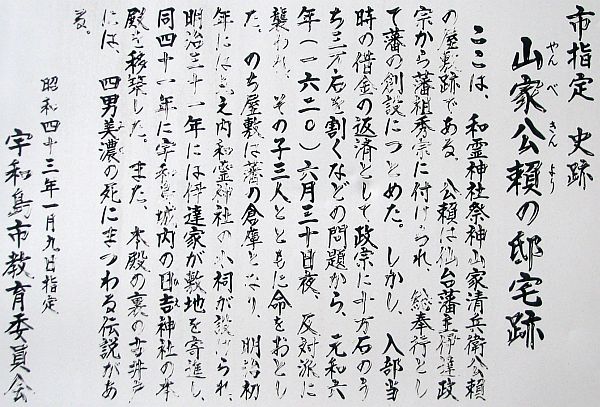 市指定　史跡
山家公頼の邸宅跡
やんべ　きんより
ここは、和霊神社祭神山家清兵衛公頼
の屋敷跡である。公頼は仙台藩主伊達政
宗から藩祖秀宗に付けられ、総奉行とし
て藩の創設につとめた。しかし、入部当
時の借金の返済として政宗に十万石のう
ち三万石を割くなどの問題から、元和六
年(一六二〇)六月三十日夜、反対派に
襲われ、その子三人とともに命をおとし
た。のち屋敷は藩の倉庫となり、明治初
年には 之内和霊神社の小祠が設けられ、
明治三十一年には伊達家が敷地を寄進し、
同四十一年に宇和島城内の日吉神社の本
殿を移築した。また、本殿の裏の古井戸
には、四男美濃の死にまつわる伝説があ
る。
昭和四十三年一月九日指定
宇和島市教育委員会